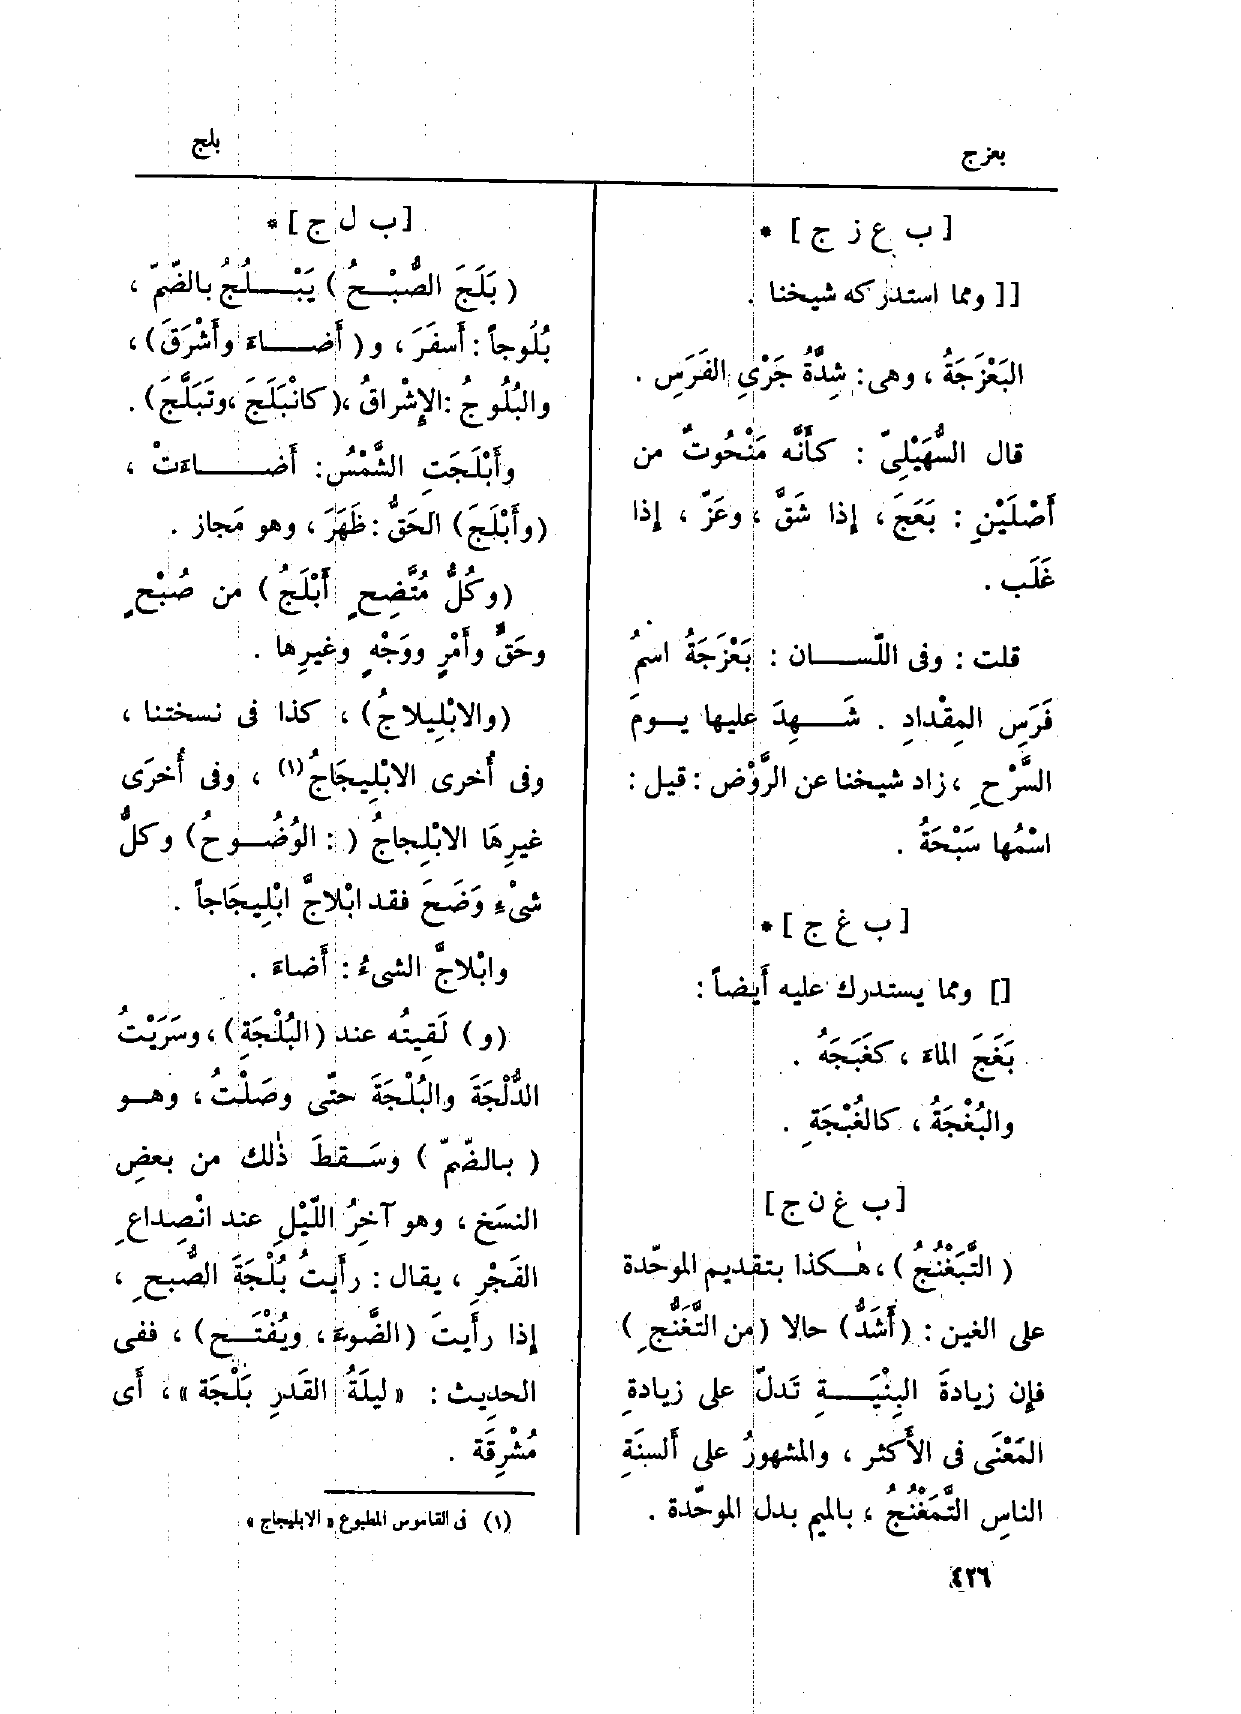 بعزج
بلج
[ ب ع ز ج ] *
[] ومما استدركه شيخنا .
البَعْزَجَةُ ، وهى : شِدَّةُ جَرْيِ الفَرَسِ .
قال السُّهَيْلِىّ : كأَنَّه مَنْحُوتٌ من
أَصْلَيْنِ : بَعَجَ ، إذا شَقَّ ، وعَزَّ ، إذا
غَلَب .
قلت : وفى اللّسـان : بَعْزَجَةُ اسمُ
فَرَسِ المِقْدادِ . شَـهِدَ عليها يـوم
السَّرْحِ ، زاد شيخنا عن الرَّوْض : قيل :
اسْمُها سَبْحَةُ .
[ ب غ ج ] *
[] ومما يستدرك عليه أَيضاً :
بَغَجَ الماءَ ، كغَبَجَهُ .
والبُغْجَةُ ، كالغُبْجَةِ .
[ ب غ ن ج ]
( التَّبَغْنُجُ ) ، هٰـكذا بتقديم الموحّدة
على الغين : ( أَشَدُّ ) حالا ( من التَّغَنُّجِ )
فإن زيادةَ البِنْيَـةِ تَدلّ على زيادةِ
المَعْنَى فى الأَكثر ، والمشهورُ على أَلسنَةِ
الناسِ التَّمَغْنُجُ ، بالميم بدل الموحّدة .
[ ب ل ج ] *
( بَلَجَ الصُّبْـحُ ) يَبْـلُجُ بالضّمّ ،
بُلُوجاً : أَسفَرَ ، و ( أَضـاءَ وأَشْرَقَ ) ،
والبُلُوجُ : الإِشْراقُ ، ( كانْبَلَجَ ، وتَبَلَّجَ ) .
وأَبْلَجَتِ الشَّمْسُ : أَضـاءَتْ ،
( وأَبْلَجَ ) الحَقُّ : ظَهَرَ ، وهو مَجاز .
( وكُلُّ مُتَّضِحٍ أَبْلَجُ ) من صُبْحٍ
وحَقٍّ وأَمْرٍ ووَجْهٍ وغيرِها .
( والابْلِيلاجُ ) ، كذا فى نسختنا ،
وفى أُخرى الابْلِيجَاجُ (١) ، وفى أُخرَى
غيرِهَا الابْلِجاجُ ( : الوُضُـوحُ ) وكلُّ
شىْءٍ وَضَحَ فقد ابْلاجَّ ابْلِيجَاجاً .
وابْلاجَّ الشىءُ : أَضاءَ .
( و ) لَقِيتُه عند ( البُلْجَةِ ) ، وسَرَيْتُ
الدُّلْجَةَ والبُلْجَةَ حتّى وصَلْتُ ، وهـو
( بـالضّمّ ) وسَـقطَ ذٰلك من بعضِ
النسَخ ، وهو آخِرُ اللّيْلِ عند انْصِداعِ
الفَجْرِ ، يقال : رأَيتُ بُلْجَةَ الصُّبحِ ،
إذا رأَيتَ ( الضَّوءَ ، ويُفْتَـح ) ، ففى
الحديث : « ليلَةُ القَدرِ بَلْجَة » ، أَى
مُشْرِقَة .
(١) فى القاموس المطبوع « الابليجاج »
٤٢٦